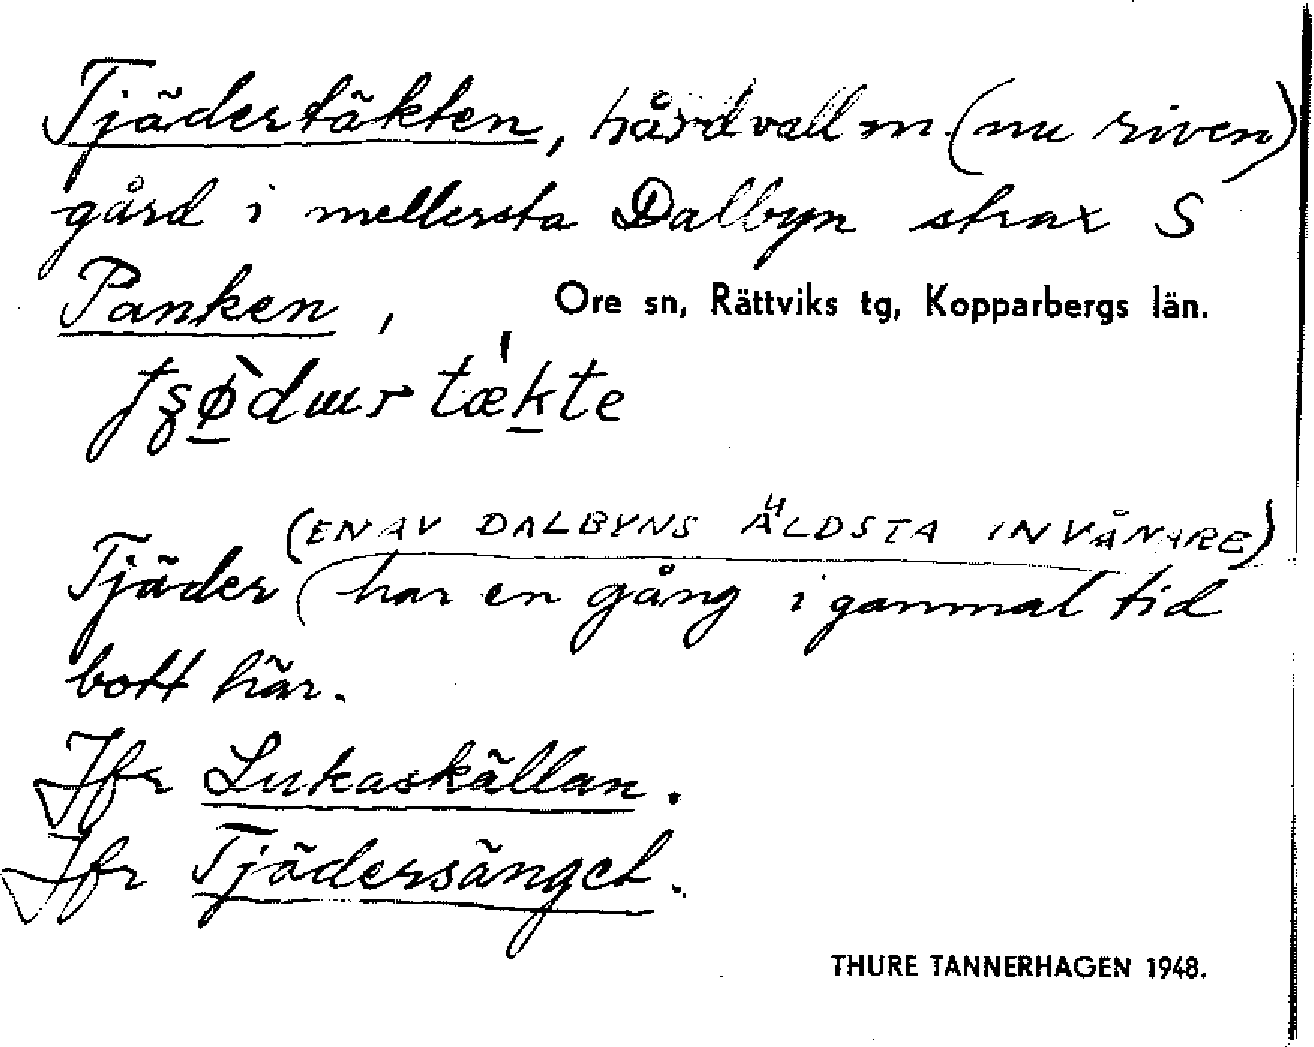 Tjädertäkten, hårdvall m. (nu riven)
gård i mellersta Dalbyn strax S
Panken, Ore sn, Rättviks tg, Kopparbergs län.
tæ̀kte
(EN AV DALBYNS ÄLDSTA INVÅNARE)
Tjäder har en gång i gammal tid
bott här.
Jfr Lukaskällan.
Jfr Tjädersänget.
THURE TANNERHAGEN 1948.